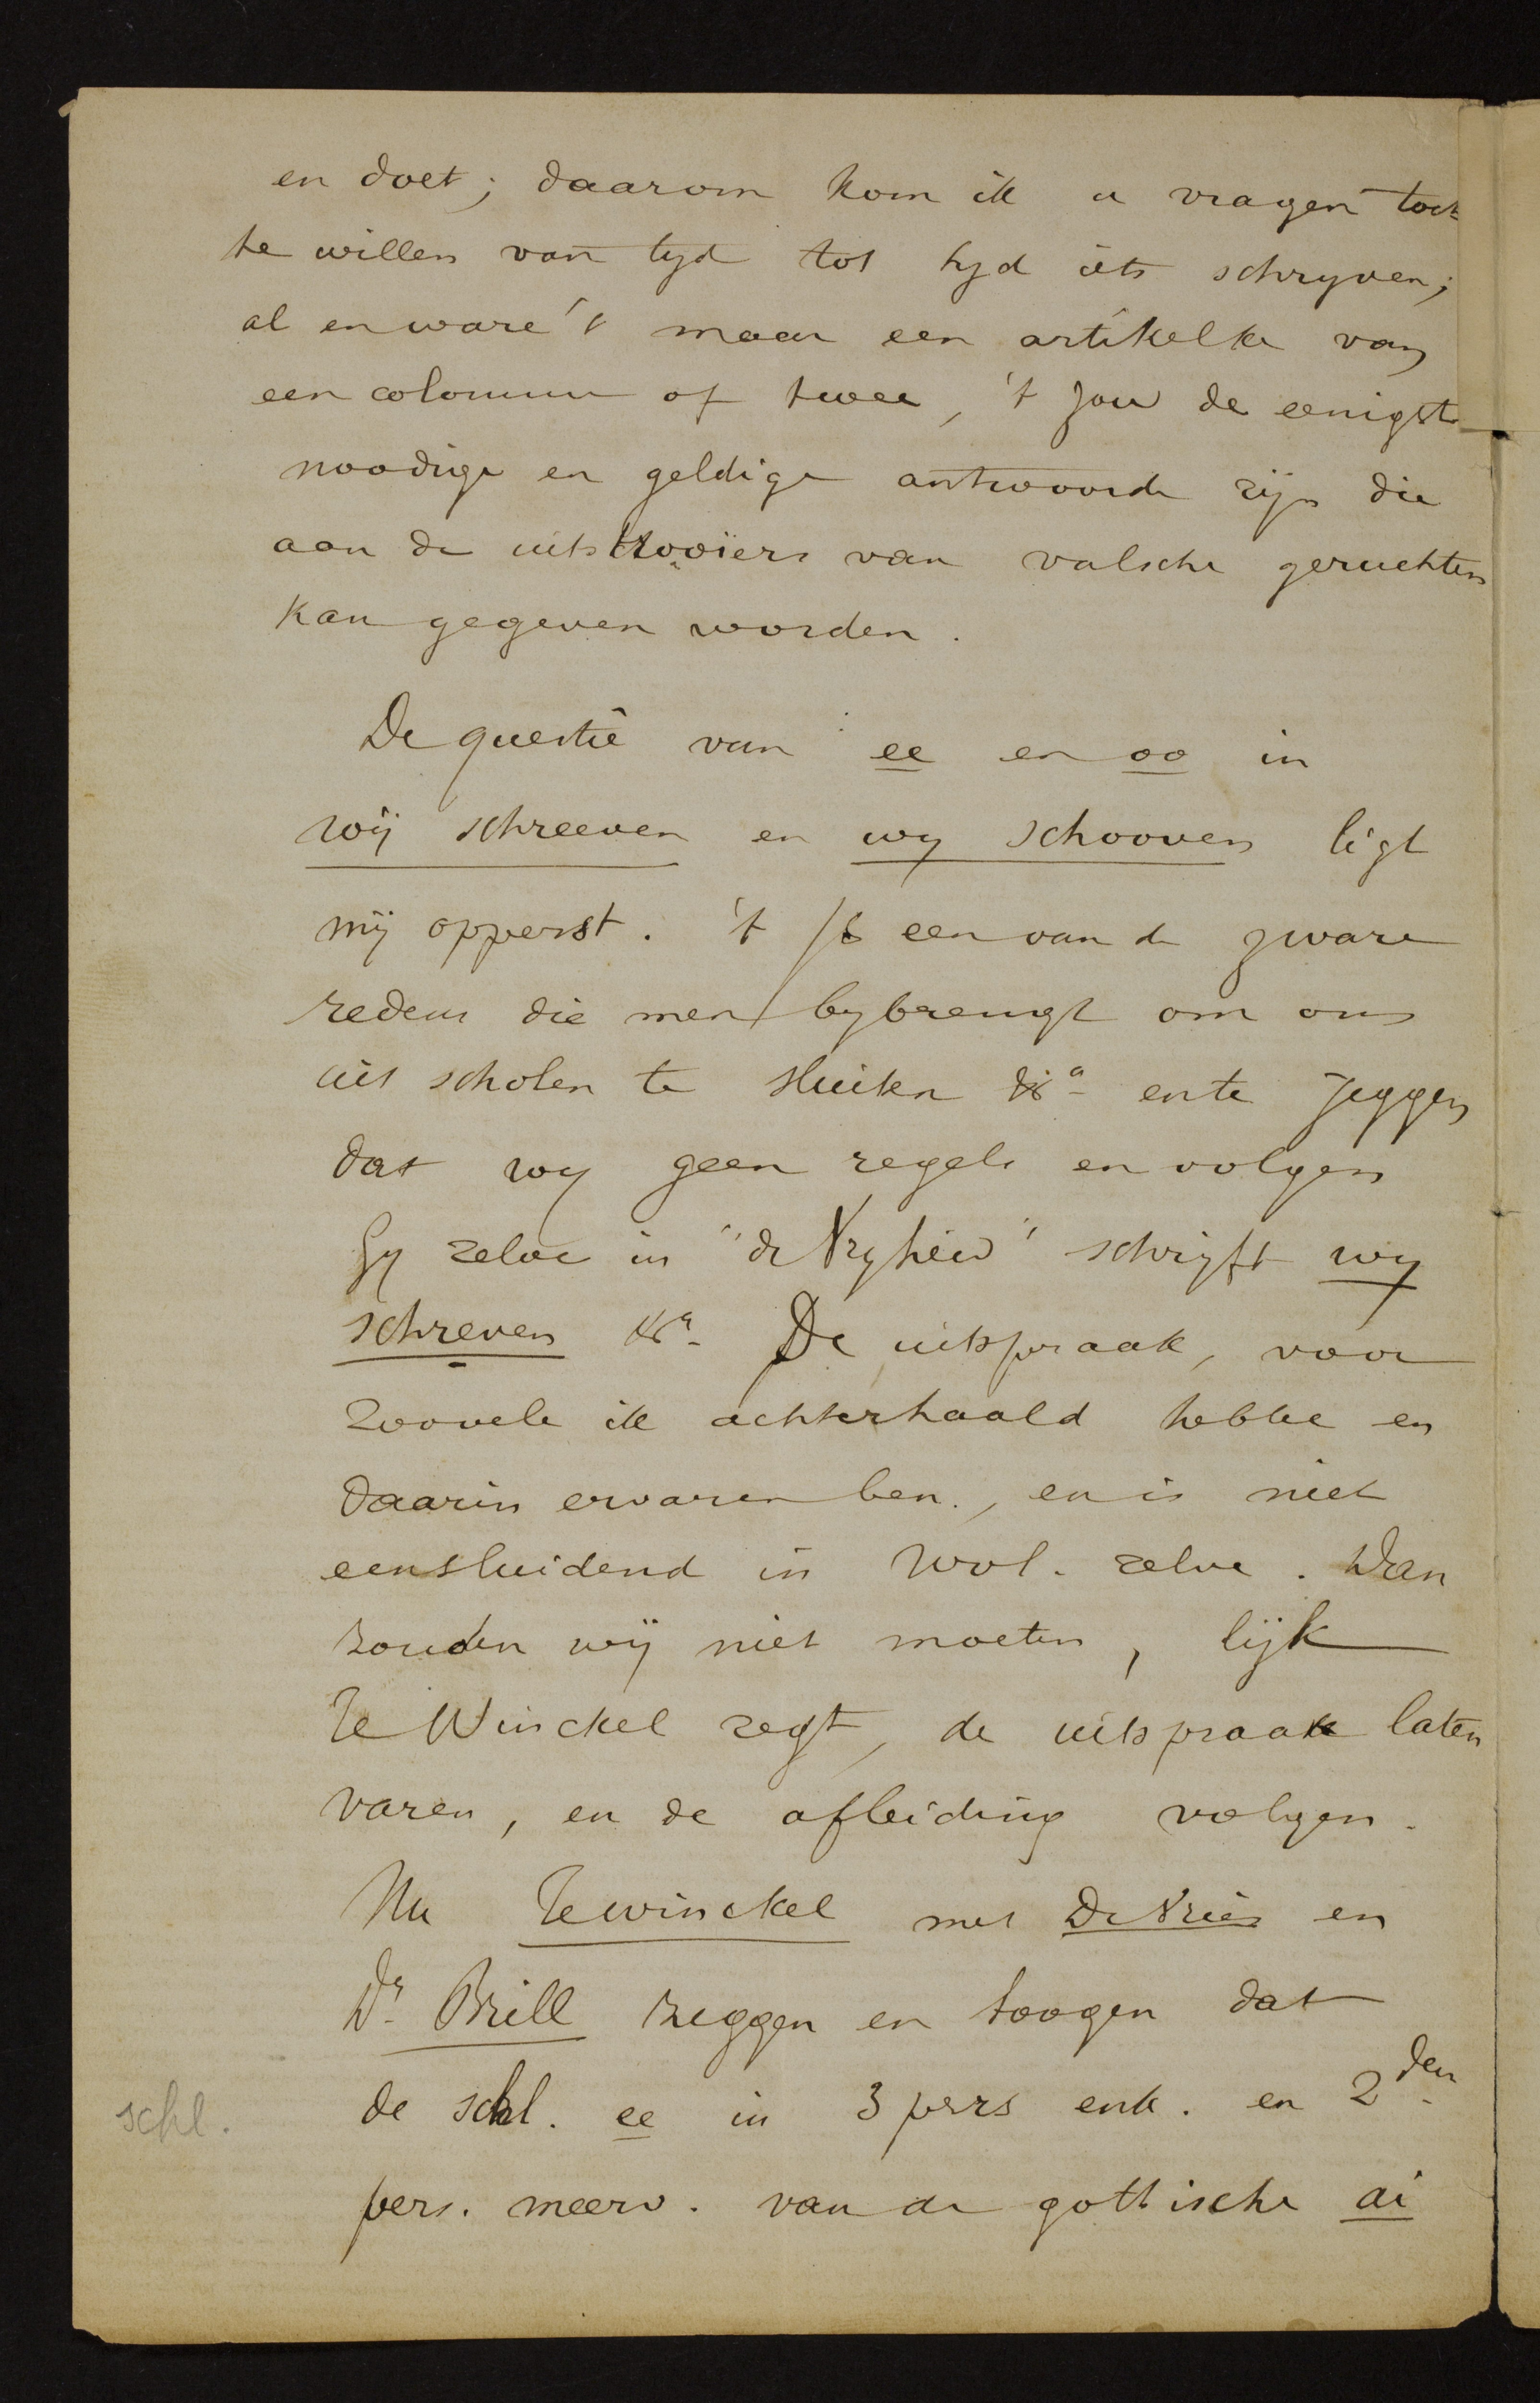 en doet; daarom kom ik u vragen toch
te willen van tyd tot tyd iets schryven;
al en ware 't maar een artikelke van
een colomme of twee, 't zou de eenigste
noodige en geldige antwoorde zijn die
aan de uitstrooiers van valsche geruchten
kan gegeven worden.
De questie van ee en oo in
wij schreeven en wy schooven ligt
mij opperst. 't Is een van de zware
redens die men bybrengt om ons
uit scholen te sluiten &a en te zeggen
dat wy geen regels en volgen
Gy zelve in "de Vryheid" schrijft wy
schreven &a. De uitspraak, voor
zoovele ik achterhaald hebbe en
daarin ervaren ben, en is niet
eensluidend in Wvl. zelve. Dan
zouden wij niet moeten, lijk
Te Winckel zegt, de uitspraak laten
varen, en de afleiding volgen.
Nu Te winckel met De Vries en
Dr Brill zeggen en toogen dat
de schl. ee in 3 pers enk. en 2den
schl.
pers. meerv. van de gothische ai